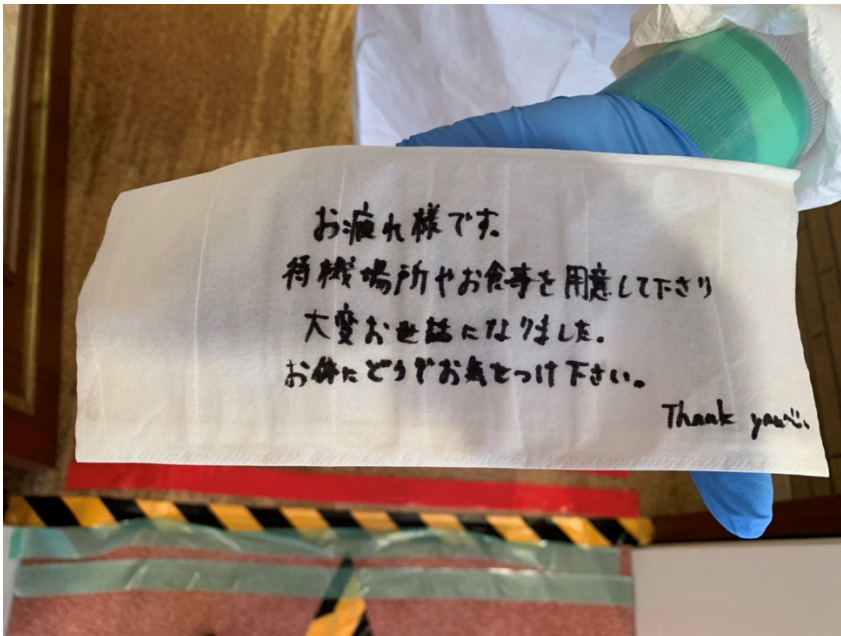 お疲れ様です。
待機場所やお食事を用意して下さり
大変お世話になりました。
お体にどうぞお気をつけ下さい。
Thank you